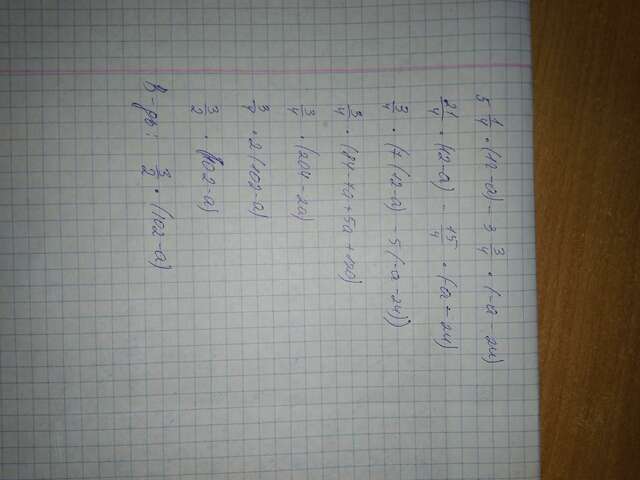 5 1/4 · (12 - a) - 3 3/4 · (-a - 24)
21/4 · (12 - a) - 15/4 · (-a - 24)
3/4 · (7(12 - a) - 5(-a - 24))
3/4 · (84 - 7a + 5a + 120)
3/4 · (204 - 2a)
3/4 · 2(102 - a)
3/2 · (102 - a)
В-дь: 3/2 · (102 - a)